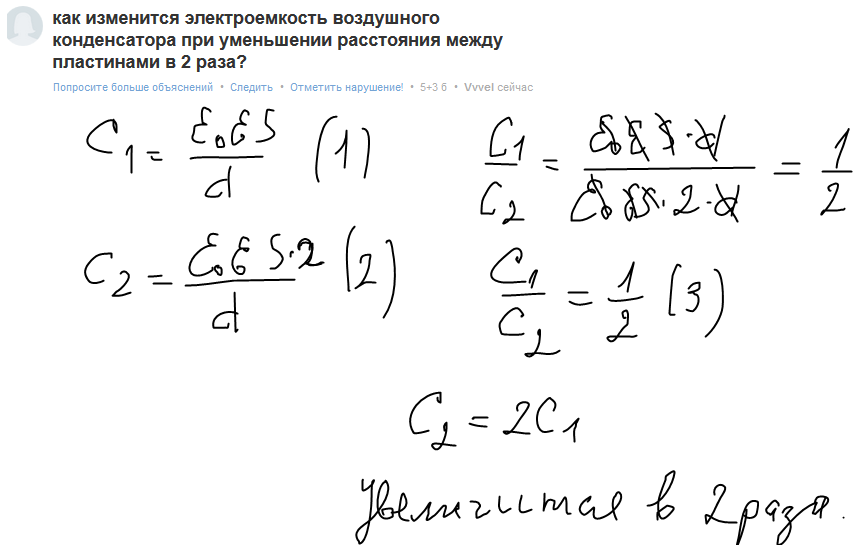 как изменится электроемкость воздушного
конденсатора при уменьшении расстояния между
пластинами в 2 раза?
Попросите больше объяснений • Следить • Отметить нарушение! • 5+3 б • Vvvel сейчас
C₁ = ε₀εS / d (1)
C₂ = ε₀εS·2 / d (2)
C₁ / C₂ = ε₀εS·d / ε₀εS·2·d = 1 / 2
C₁ / C₂ = 1 / 2 (3)
C₂ = 2C₁
Увеличится в 2 раза.